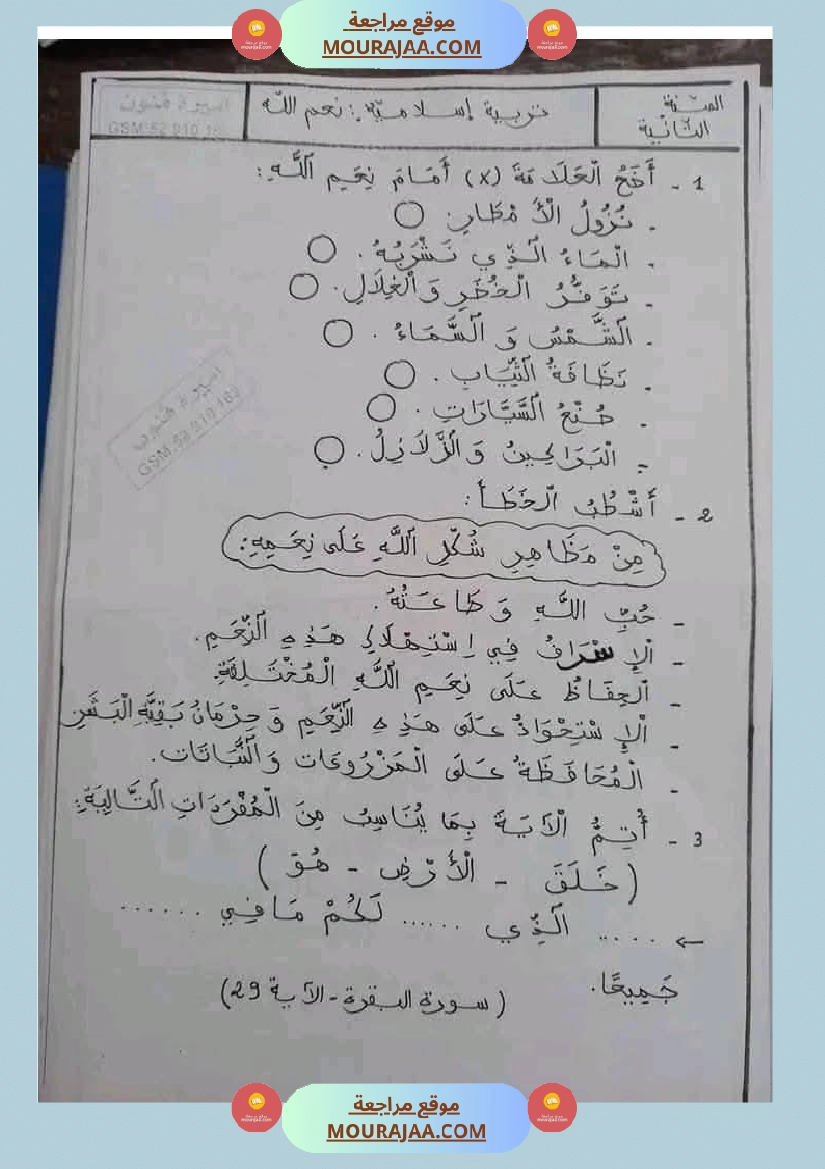 موقع مراجعة
MOURAJAA.COM
السنة الثانية
تربية إسلامية : نعم الله
أميرة فنون
GSM:52 919 169
1 - أَضَعُ الْعَلَامَةَ (x) أَمَامَ نِعَمِ اللَّهِ:
. نُزُولُ الْأَمْطَارِ.
. الْمَاءُ الَّذِي نَشْرَبُهُ.
. تَوَفُّرُ الْخُضَرِ وَالْغِلَالِ.
. الشَّمْسُ وَ السَّمَاءُ.
. نَظَافَةُ الثِّيَابِ.
. صُنْعُ السَّيَّارَاتِ.
. الْبَرَاكِينُ وَالزَّلَازِلُ.
أميرة فنون
GSM:52 919 169
2 - أَشْطُبُ الْخَطَأَ:
مِنْ مَظَاهِرِ شُكْرِ اللَّهِ عَلَى نِعَمِهِ:
- حُبِّ اللَّهِ وَ طَاعَتُهُ.
- الْإِسْرَافُ فِي اِسْتِهْلَاكِ هَذِهِ النِّعَمِ.
- الْحِفَاظُ عَلَى نِعَمِ اللَّهِ الْمُخْتَلِفَةِ.
- الْإِسْتِحْوَاذُ عَلَى هَذِهِ النِّعَمِ وَ حِرْمَانُ بَقِيَّةِ الْبَشَرِ
- الْمُحَافَظَةُ عَلَى الْمَزْرُوعَات وَالنَّبَاتَات.
3 - أُتِمُّ الْآيَةَ بِمَا يُنَاسِبُ مِنَ الْمُفْرَدَاتِ التَّالِيَةِ:
(خَلَقَ - الْأَرْضِ - هُوَ)
← ..... الَّذِي ...... لَكُمْ مَا فِي ......
جَمِيعًا.
(سورة البقرة - الآية 29)
موقع مراجعة
MOURAJAA.COM